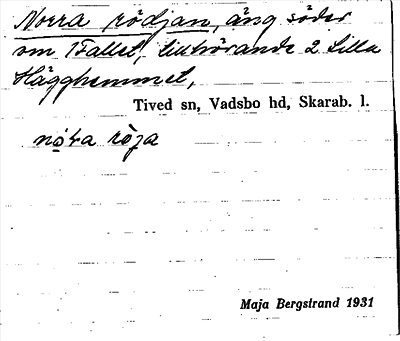 Norra rödjan, äng söder
om 1 Fallet, tillhörande 2 Lilla
Hägghemmet,
Tived sn, Vadsbo hd, Skarab. l.
nọ̀ra rö̀ja
Maja Bergstrand 1931